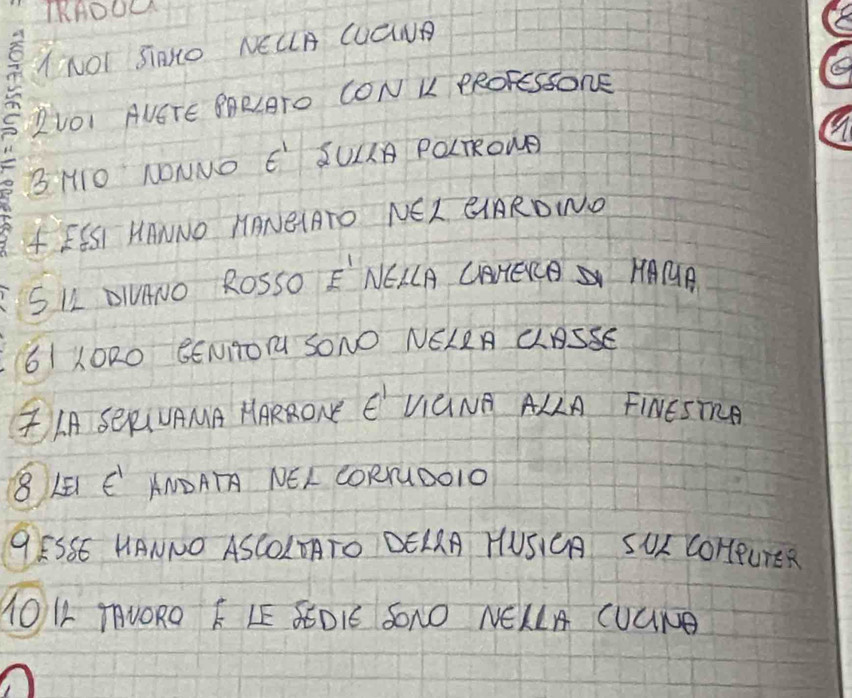 TRADUCI
1 NOI SIAMO NELLA CUCINA
2 VOI AVETE PARLATO CON IL PROFESSORE
3 MIO NONNO E' SULLA POLTRONA
4 ESSI HANNO MANGIATO NEL GIARDINO
5 IL DIVANO ROSSO E' NELLA CAMERA DI MARIA
6 I LORO GENITORI SONO NELLA CLASSE
7 LA SCRIVANIA MARRONE E' VICINA ALLA FINESTRA
8 LEI E' ANDATA NEL CORRIDOIO
9 ESSE HANNO ASCOLTATO DELLA MUSICA SUL COMPUTER
10 IL TAVORO E LE SEDIE SONO NELLA CUCINA